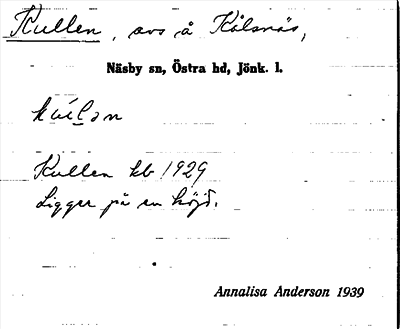 Kullen, avs å Kålsnäs,
Näsby sn, Östra hd, Jönk. l.
kúlən
Kullen kb 1929
Ligger på en höjd.
Annalisa Anderson 1939